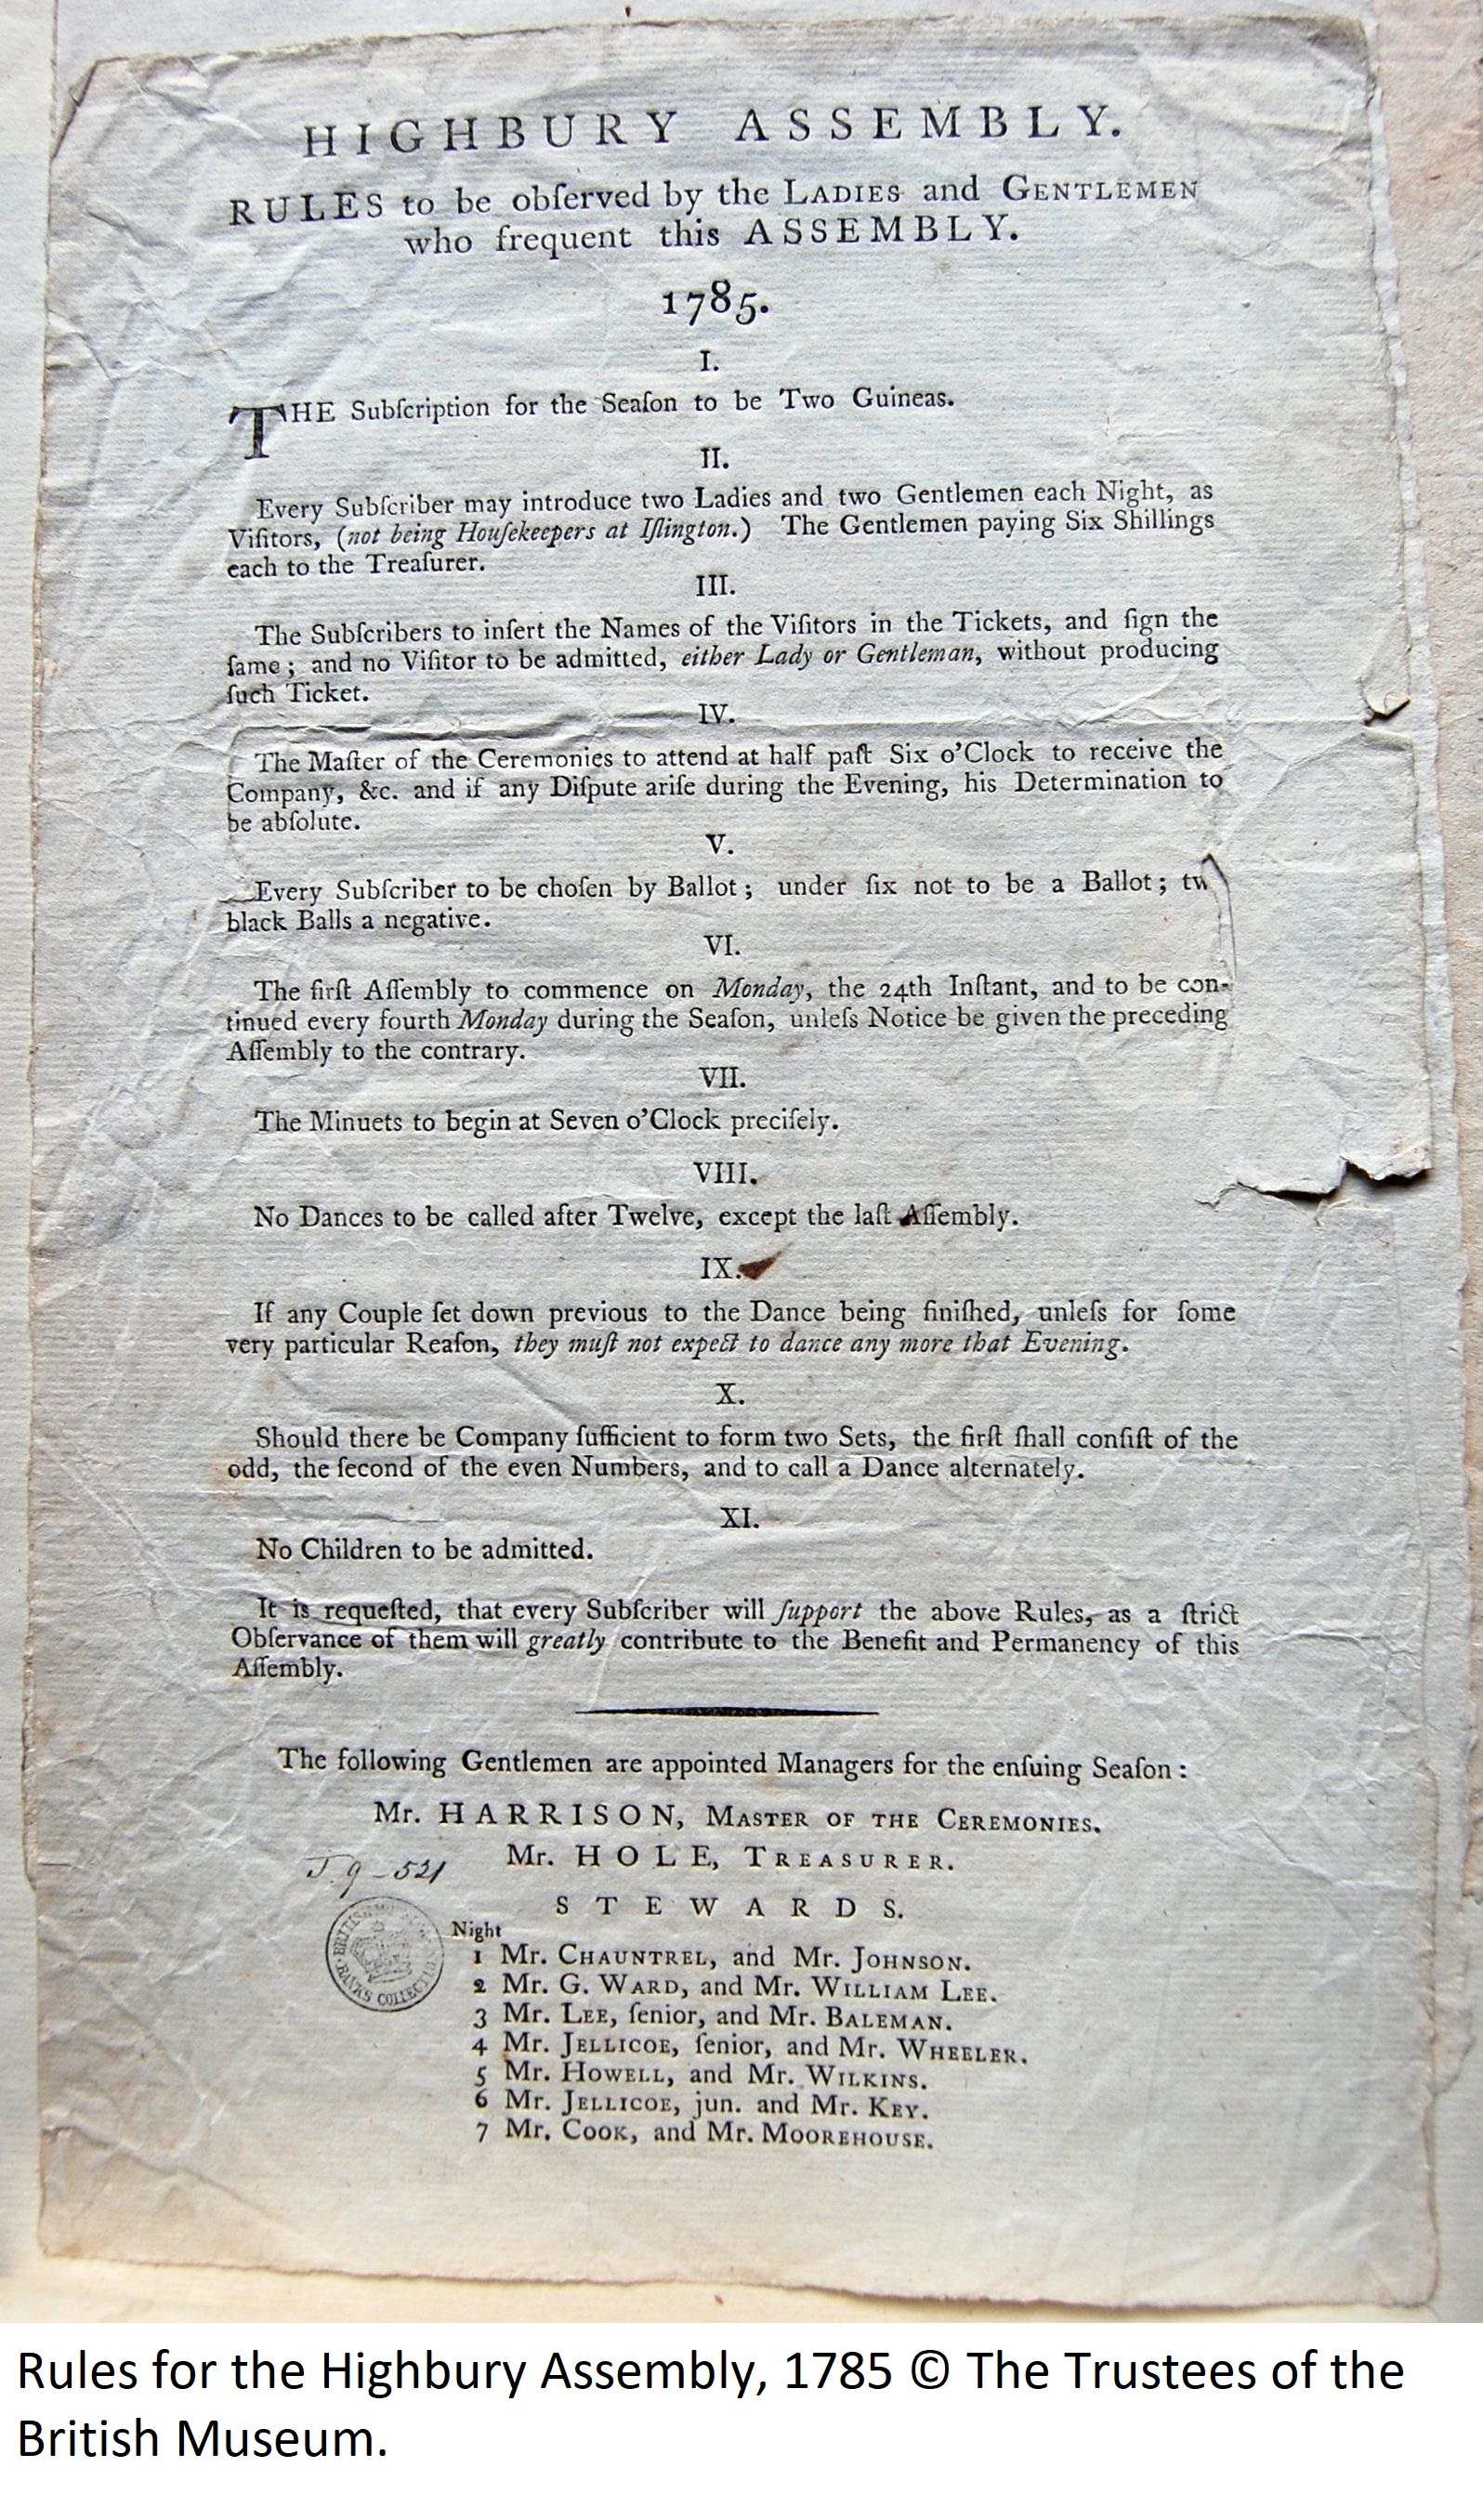 HIGHBURY ASSEMBLY.
RULES to be obſerved by the LADIES and GENTLEMEN
who frequent this ASSEMBLY.
1785.
I.
THE Subſcription for the Seaſon to be Two Guineas.
II.
Every Subſcriber may introduce two Ladies and two Gentlemen each Night, as
Viſitors, (not being Houſekeepers at Iſlington.) The Gentlemen paying Six Shillings
each to the Treaſurer.
III.
The Subſcribers to inſert the Names of the Viſitors in the Tickets, and ſign the
ſame; and no Viſitor to be admitted, either Lady or Gentleman, without producing
ſuch Ticket.
IV.
The Maſter of the Ceremonies to attend at half paſt Six o'Clock to receive the
Company, &c. and if any Diſpute ariſe during the Evening, his Determination to
be abſolute.
V.
Every Subſcriber to be choſen by Ballot; under ſix not to be a Ballot; tw
black Balls a negative.
VI.
The firſt Aſſembly to commence on Monday, the 24th Inſtant, and to be con-
tinued every fourth Monday during the Seaſon, unleſs Notice be given the preceding
Aſſembly to the contrary.
VII.
The Minuets to begin at Seven o'Clock preciſely.
VIII.
No Dances to be called after Twelve, except the laſt Aſſembly.
IX.
If any Couple ſet down previous to the Dance being finiſhed, unleſs for ſome
very particular Reaſon, they muſt not expect to dance any more that Evening.
X.
Should there be Company ſufficient to form two Sets, the firſt ſhall conſiſt of the
odd, the ſecond of the even Numbers, and to call a Dance alternately.
XI.
No Children to be admitted.
It is requeſted, that every Subſcriber will ſupport the above Rules, as a ſtrict
Obſervance of them will greatly contribute to the Benefit and Permanency of this
Aſſembly.
The following Gentlemen are appointed Managers for the enſuing Seaſon:
Mr. HARRISON, MASTER OF THE CEREMONIES.
Mr. HOLE, TREASURER.
J. 9-521
STEWARDS.
BRITISH
BANKS COLLECTION
Night
1 Mr. CHAUNTREL, and Mr. JOHNSON.
2 Mr. G. WARD, and Mr. WILLIAM LEE.
3 Mr. LEE, ſenior, and Mr. BALEMAN.
4 Mr. JELLICOE, ſenior, and Mr. WHEELER.
5 Mr. HOWELL, and Mr. WILKINS.
6 Mr. JELLICOE, jun. and Mr. KEY.
7 Mr. COOK, and Mr. MOOREHOUSE.
Rules for the Highbury Assembly, 1785 © The Trustees of the
British Museum.